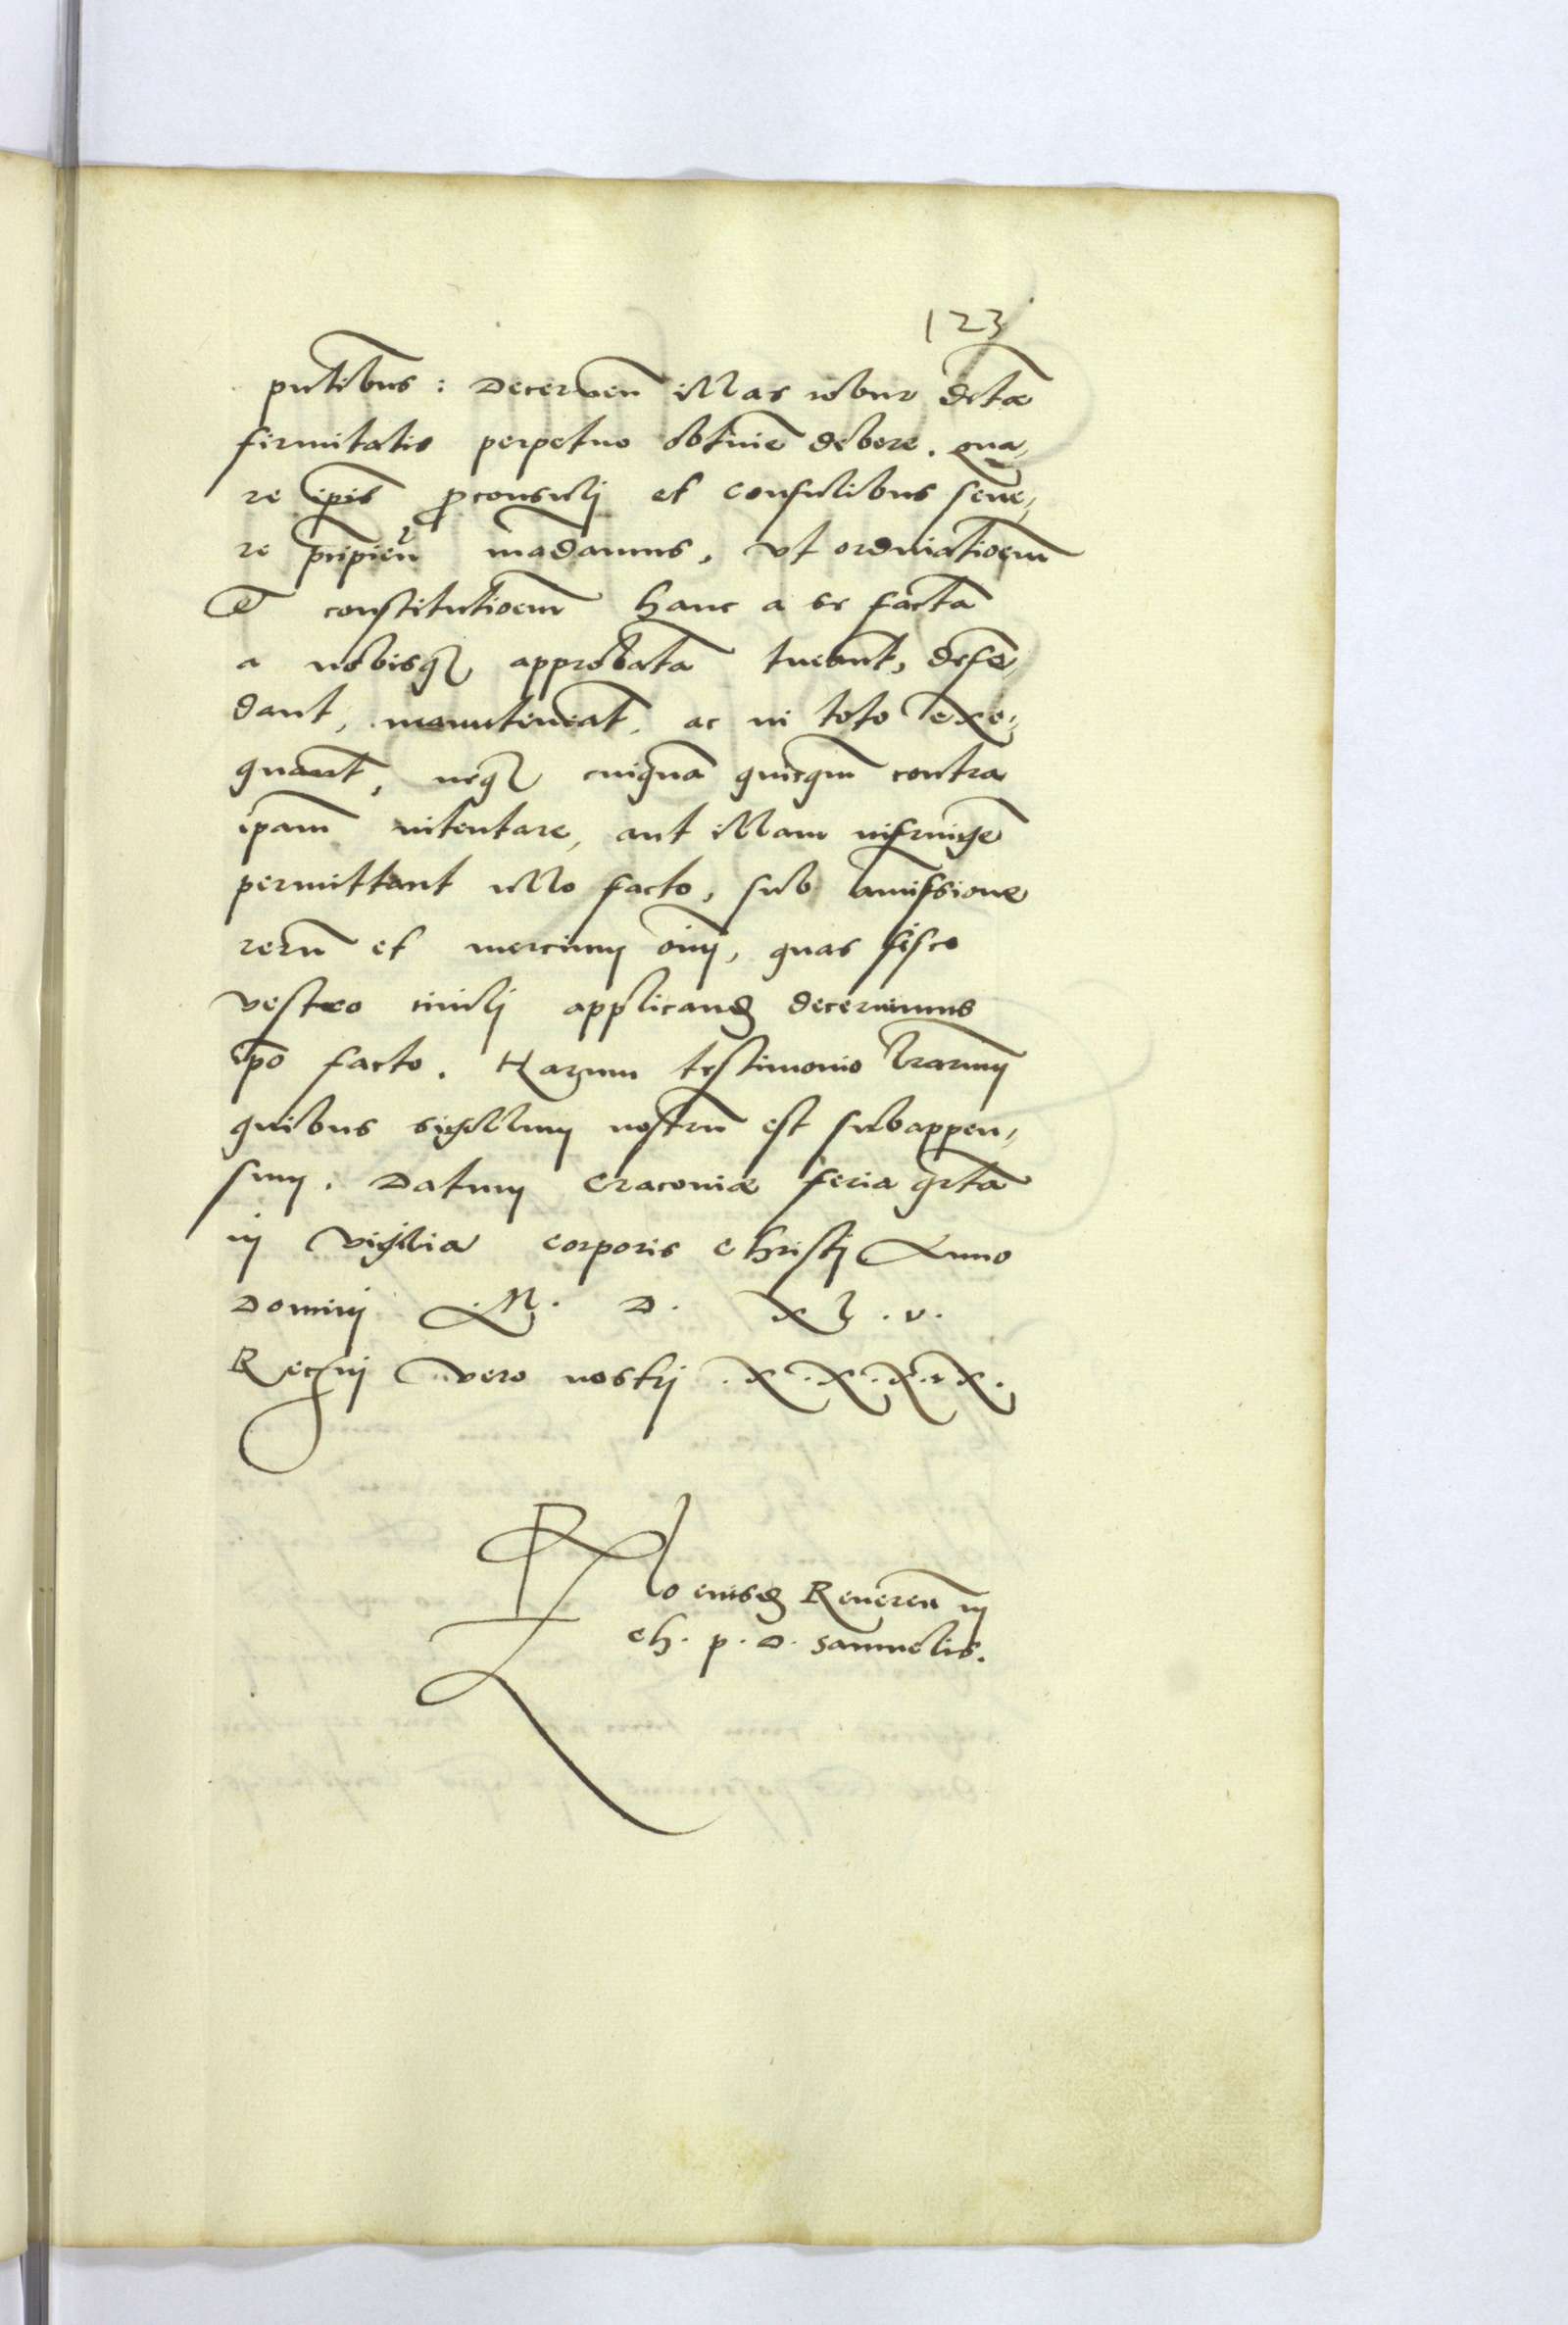 123
pntibus : Decernen illas robur debitae
firmitatis perpetuo obtinere debere . qua,
re ipis proconsulj et consulibus seue,
re pripien madamus , vt ordinatioem
& constitutioem hanc a se facta
a nobisq approbata tueant, defe,
dant , manuteneat , ac in toto exe,
quant , neq cuiqua quicqm contra
ipam intentare , aut illam infringe
permittant ullo facto , sub amissione
reru et mercium oim , quas fisco
vestro ciuilj applicand decernimus
ipo facto . Harum testimonio lrarum
quibus sigillum nostru est subappen,
sum . Datum Cracouiae feria qrta
in vigilia corporis Christj Anno
Dominj . M . D . XL . v .
Regnj vero nostrj . X . X . X . X .
Rlo eiusd Reueren in
Ch . p . D . Samuelis .